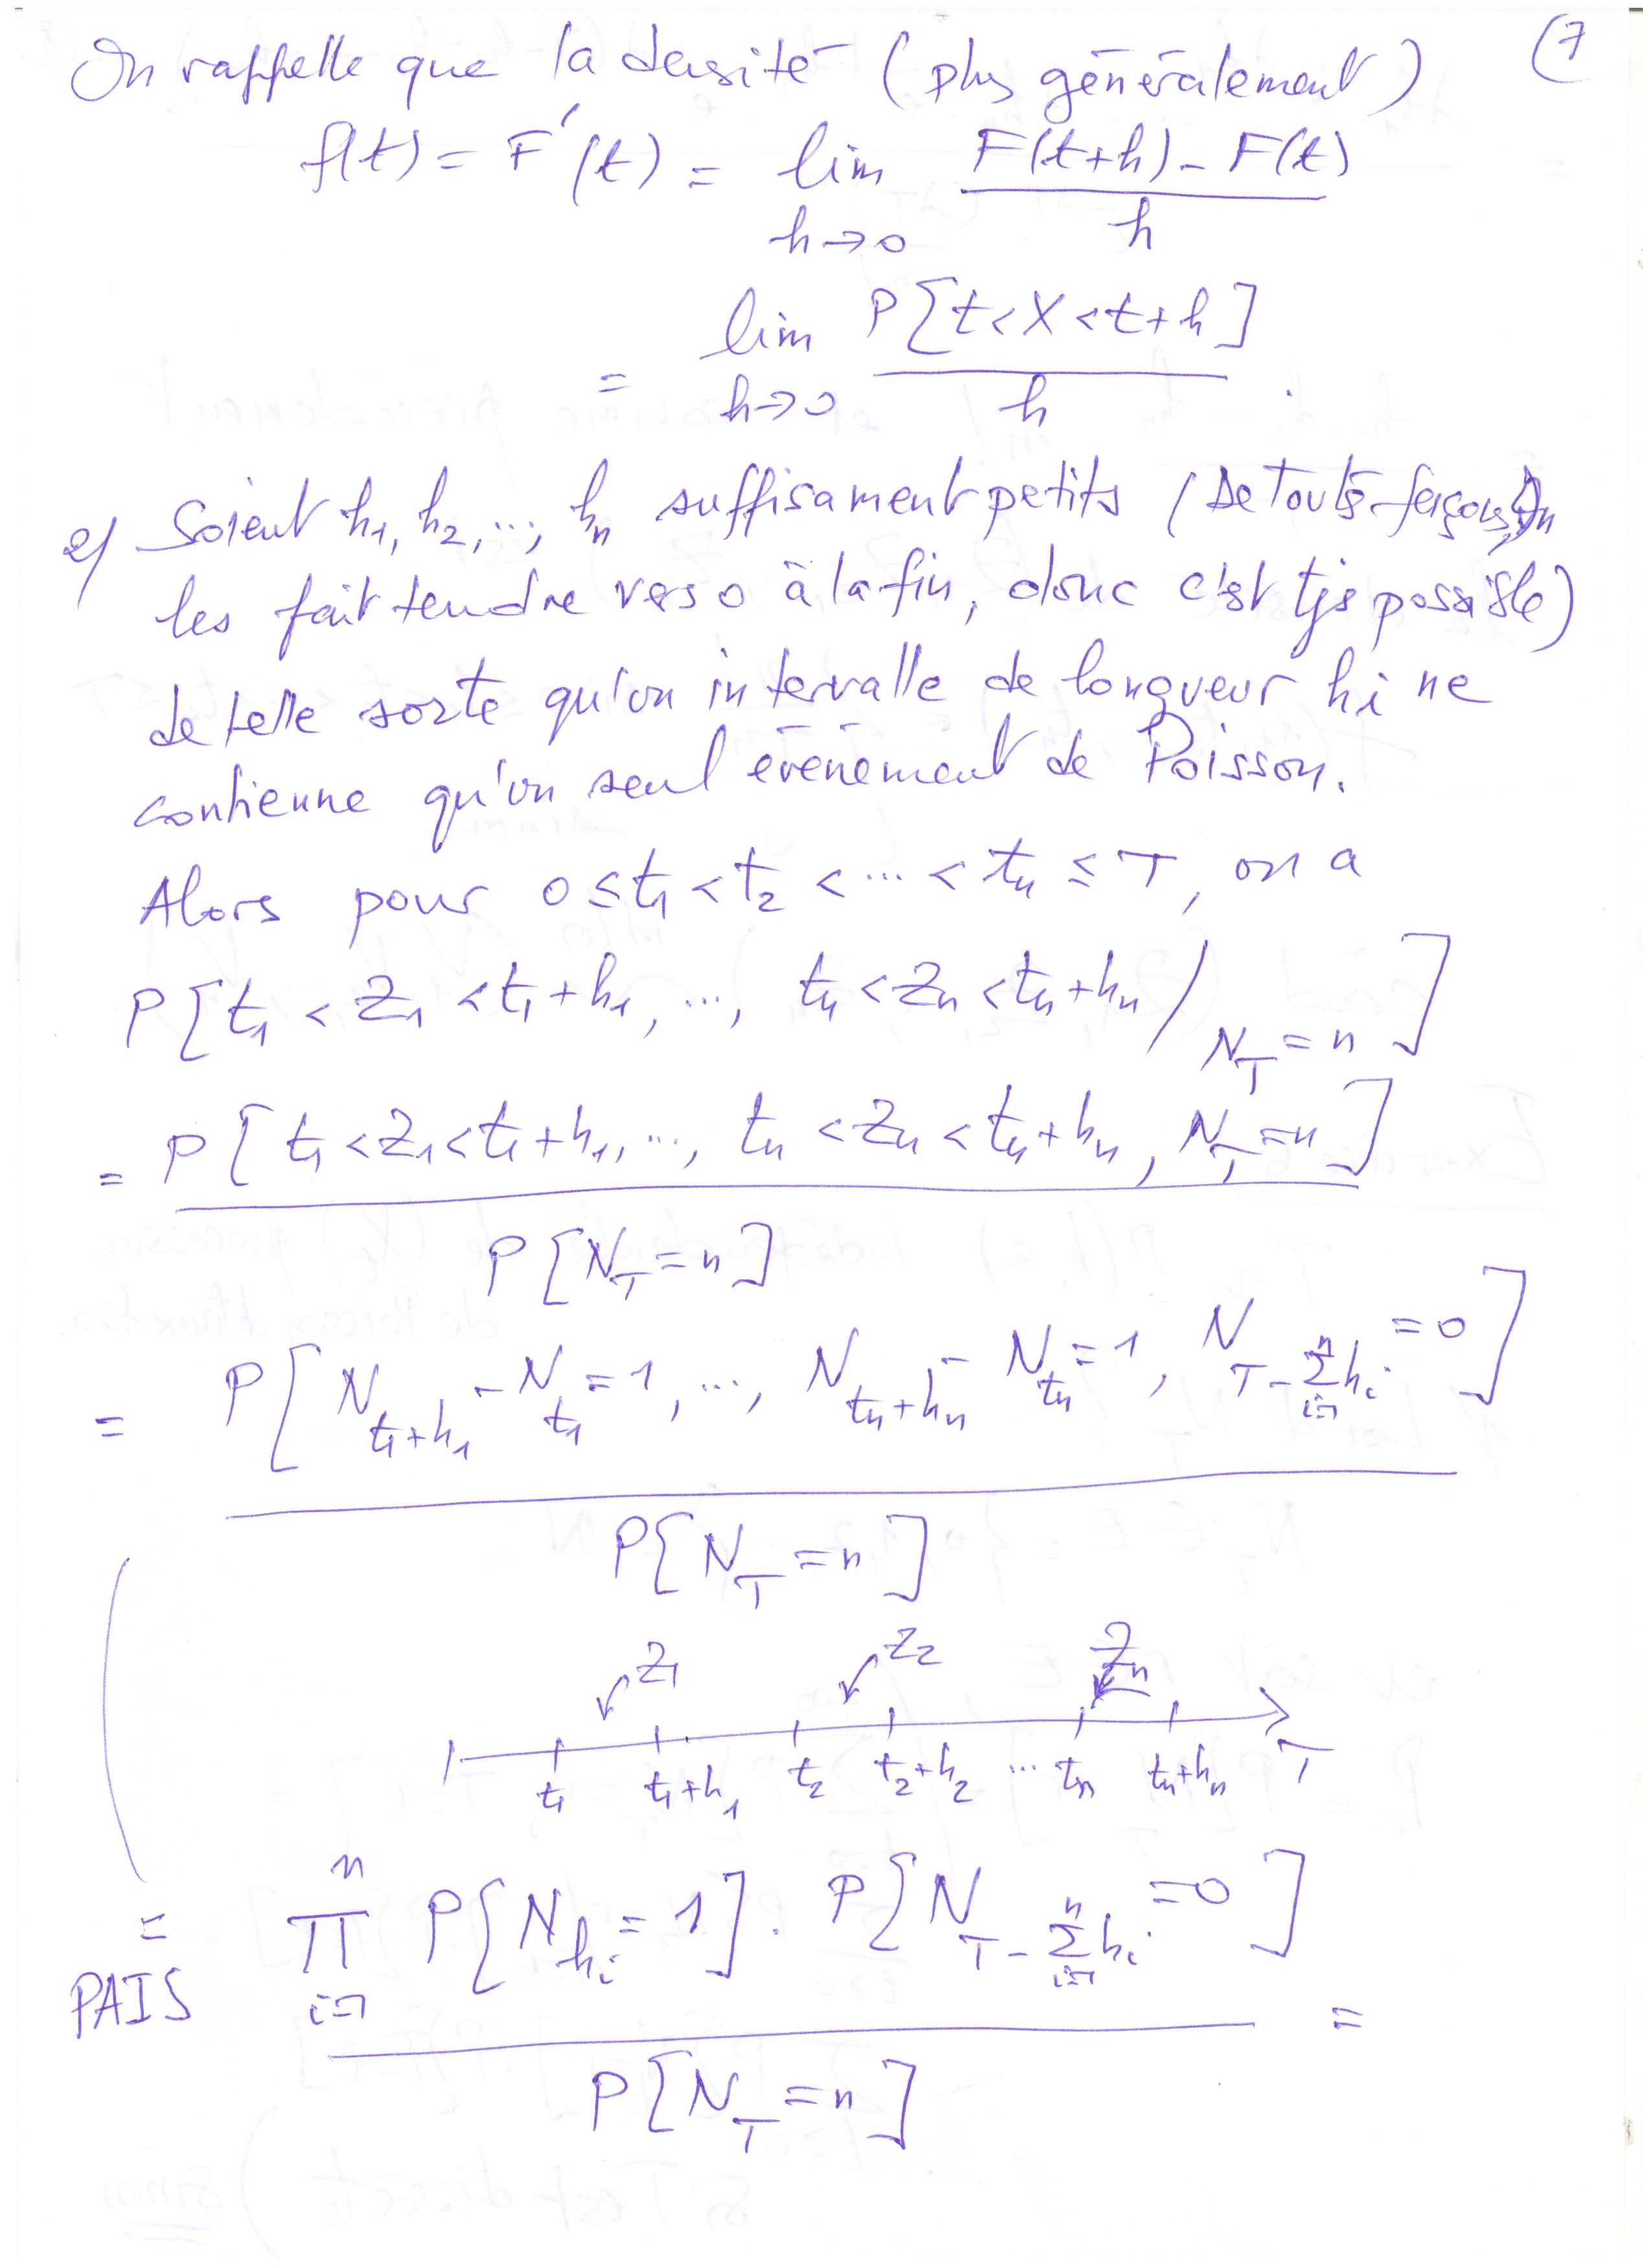 (7
On rappelle que la densité (plus généralement)
f(t) = F'(t) = lim F(t+h) - F(t)
h→0 h
= lim P[t<X<t+h]
h→0 h .
2/ Soient h1, h2, ..., hn suffisament petits (De toutes façons, on
les fait tendre vers 0 à la fin, donc c'est tjs possible)
de telle sorte qu'un intervalle de longueur hi ne
contienne qu'un seul évènement de Poisson.
Alors pour 0 ≤ t1 < t2 < ... < tn ≤ T, on a
P[t1 < Z1 < t1+h1, ..., tn < Zn < tn+hn / NT = n]
= P[t1 < Z1 < t1+h1, ..., tn < Zn < tn+hn, NT = n]
P[NT = n]
= P[Nt1+h1 - Nt1 = 1, ..., Ntn+hn - Ntn = 1, NT-Σ_{i=1}^{n} hi = 0]
P[NT = n]
Z1 Z2 Zn
t1 t1+h1 t2 t2+h2 ... tn tn+hn T
= Π_{i=1}^{n} P[Nhi = 1] . P[NT-Σ_{i=1}^{n} hi = 0]
PAIS =
P[NT = n]